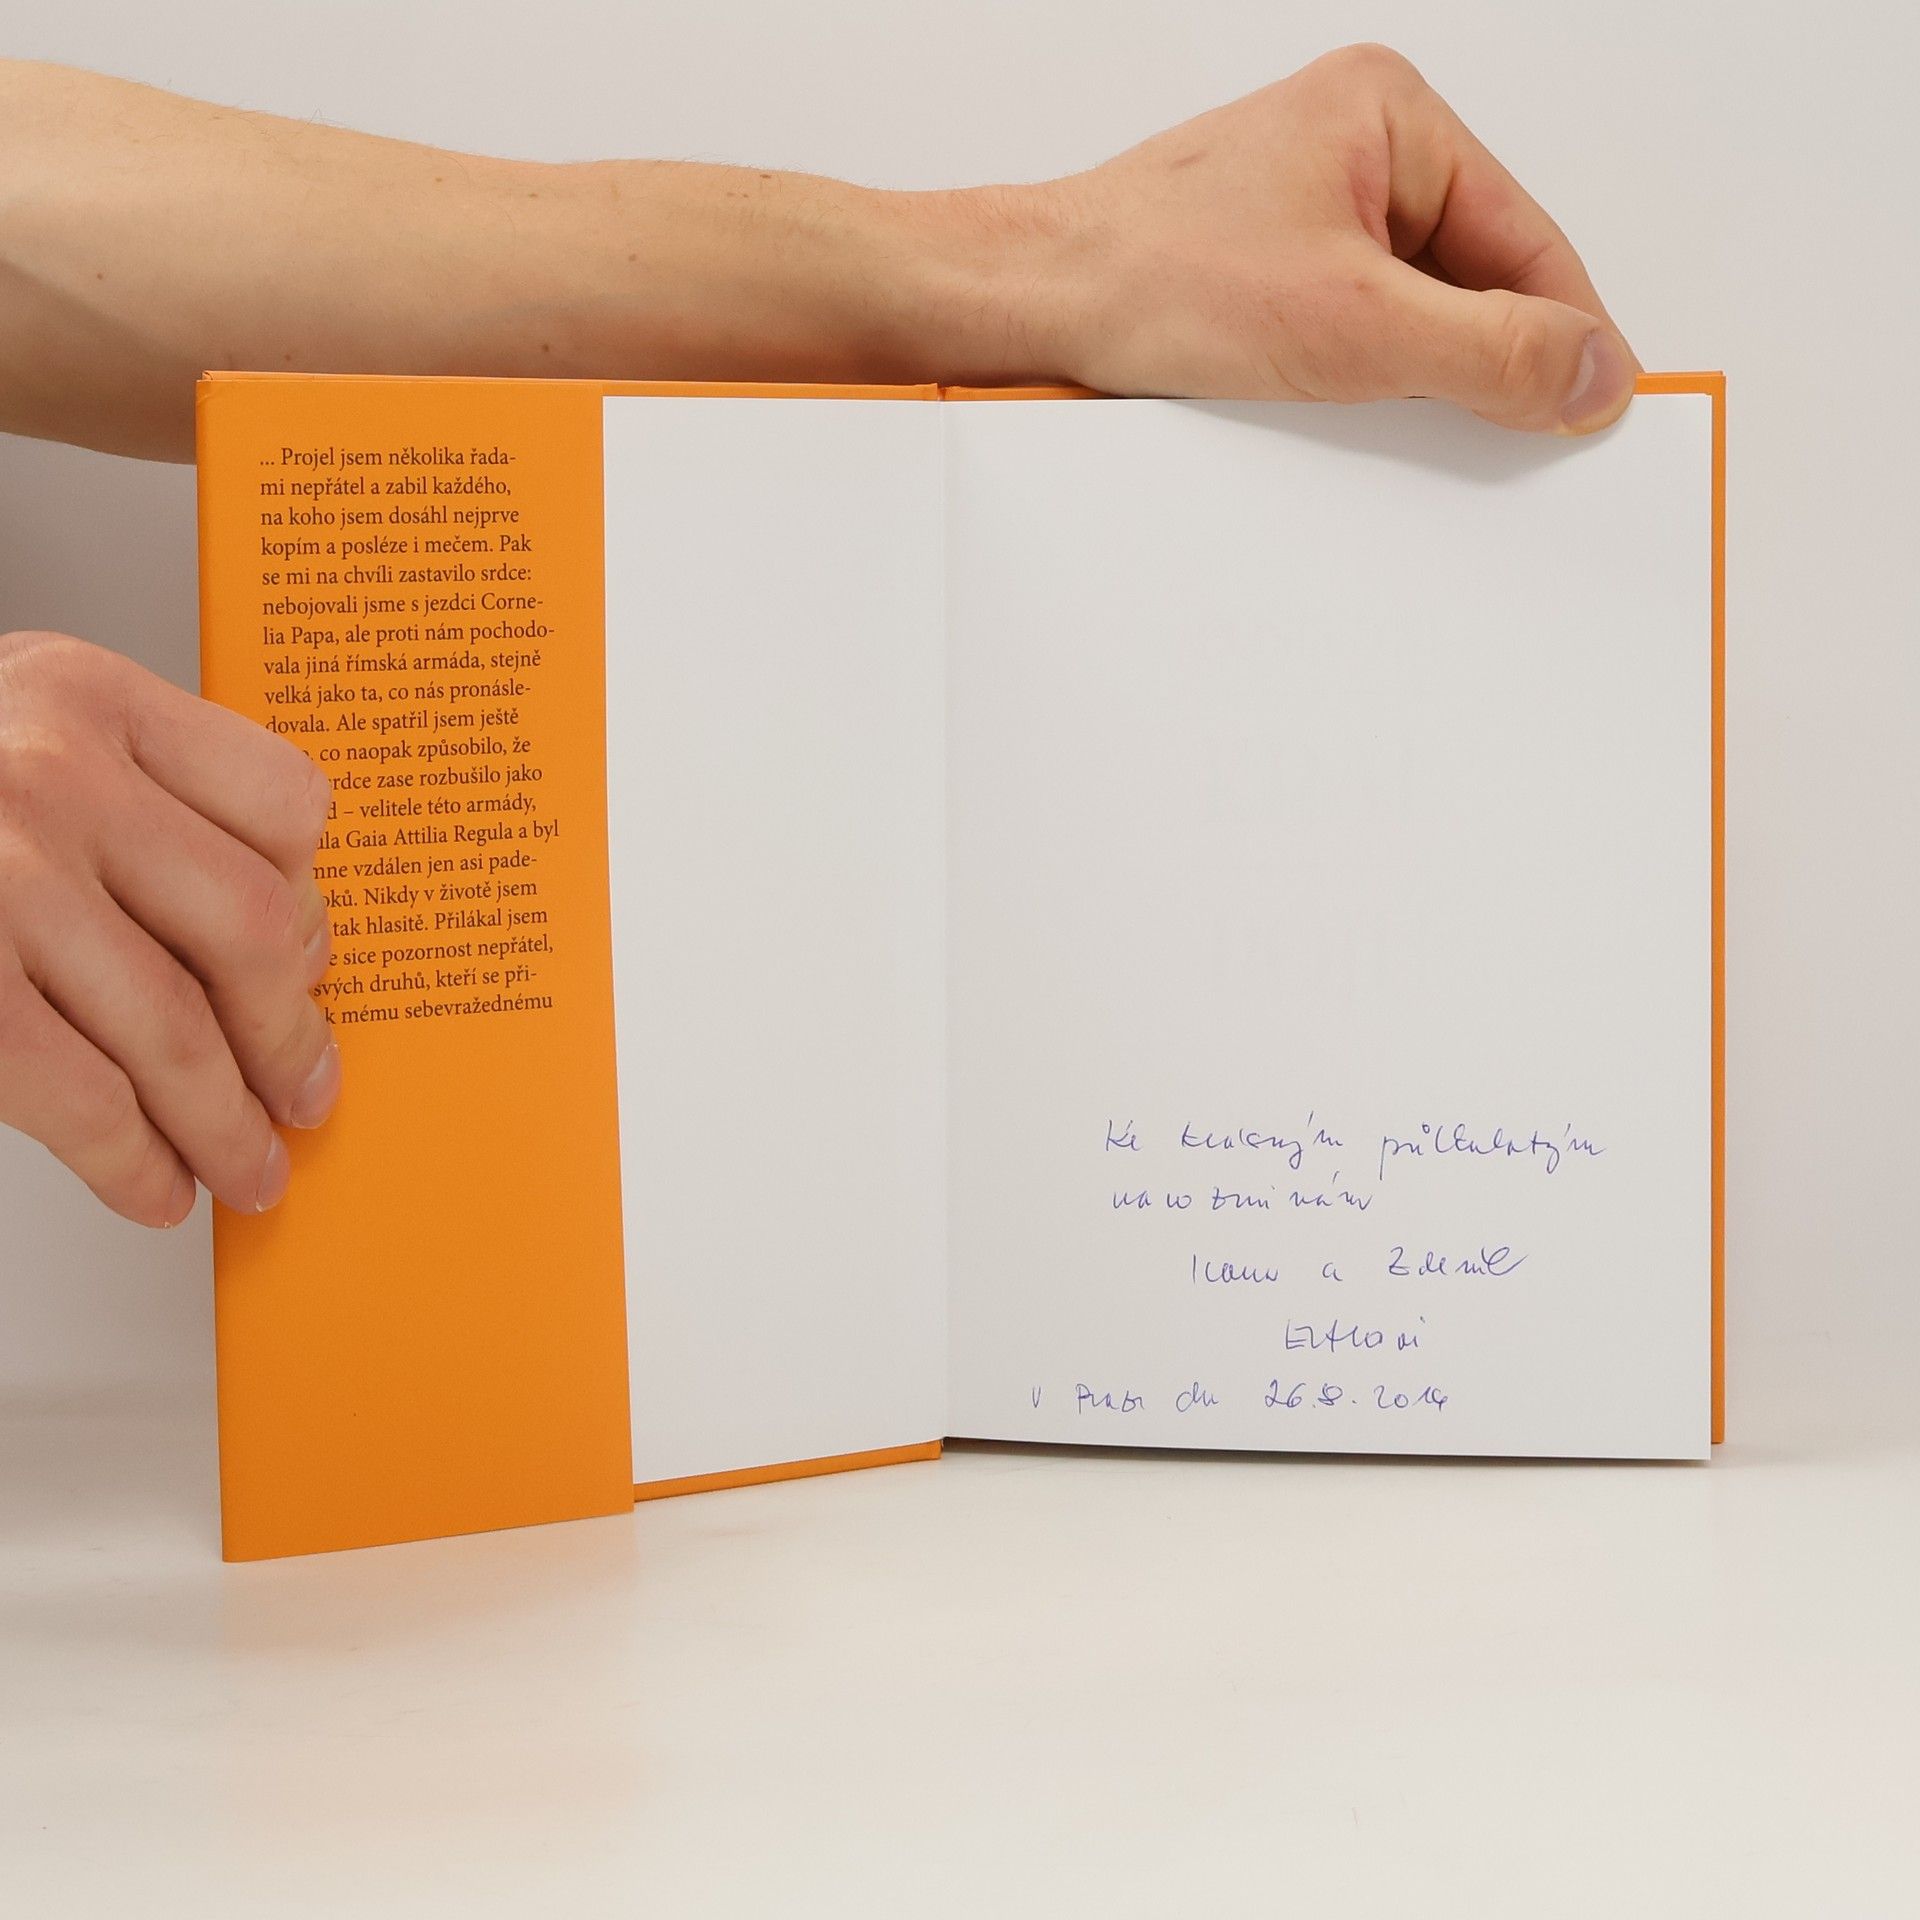 ... Projel jsem několika řada-
mi nepřátel a zabil každého,
na koho jsem dosáhl nejprve
kopím a posléze i mečem. Pak
se mi na chvíli zastavilo srdce:
nebojovali jsme s jezdci Corne-
lia Papa, ale proti nám pochodo-
vala jiná římská armáda, stejně
velká jako ta, co nás pronásle-
dovala. Ale spatřil jsem ještě
co naopak způsobilo, že
srdce zase rozbušilo jako
– velitele této armády,
Gaia Attilia Regula a byl
mne vzdálen jen asi pade-
Nikdy v životě jsem
tak hlasitě. Přilákal jsem
sice pozornost nepřátel,
svých druhů, kteří se při-
k mému sebevražednému
Ke krásným půlkulatým
narozeninám
Ivana a Zdeněk
V Praze dne 26.8.2014